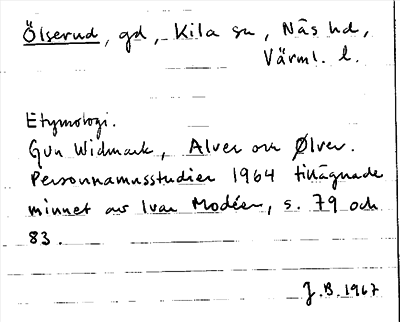 Ölserud, gd, Kila sn, Näs hd,
Värml. l.
Etymologi.
Gun Widmark, Alver och Ølver.
Personnamnsstudier 1964 tillägnade
minnet av Ivar Modéer, s. 79 och
83.
J.B. 1967